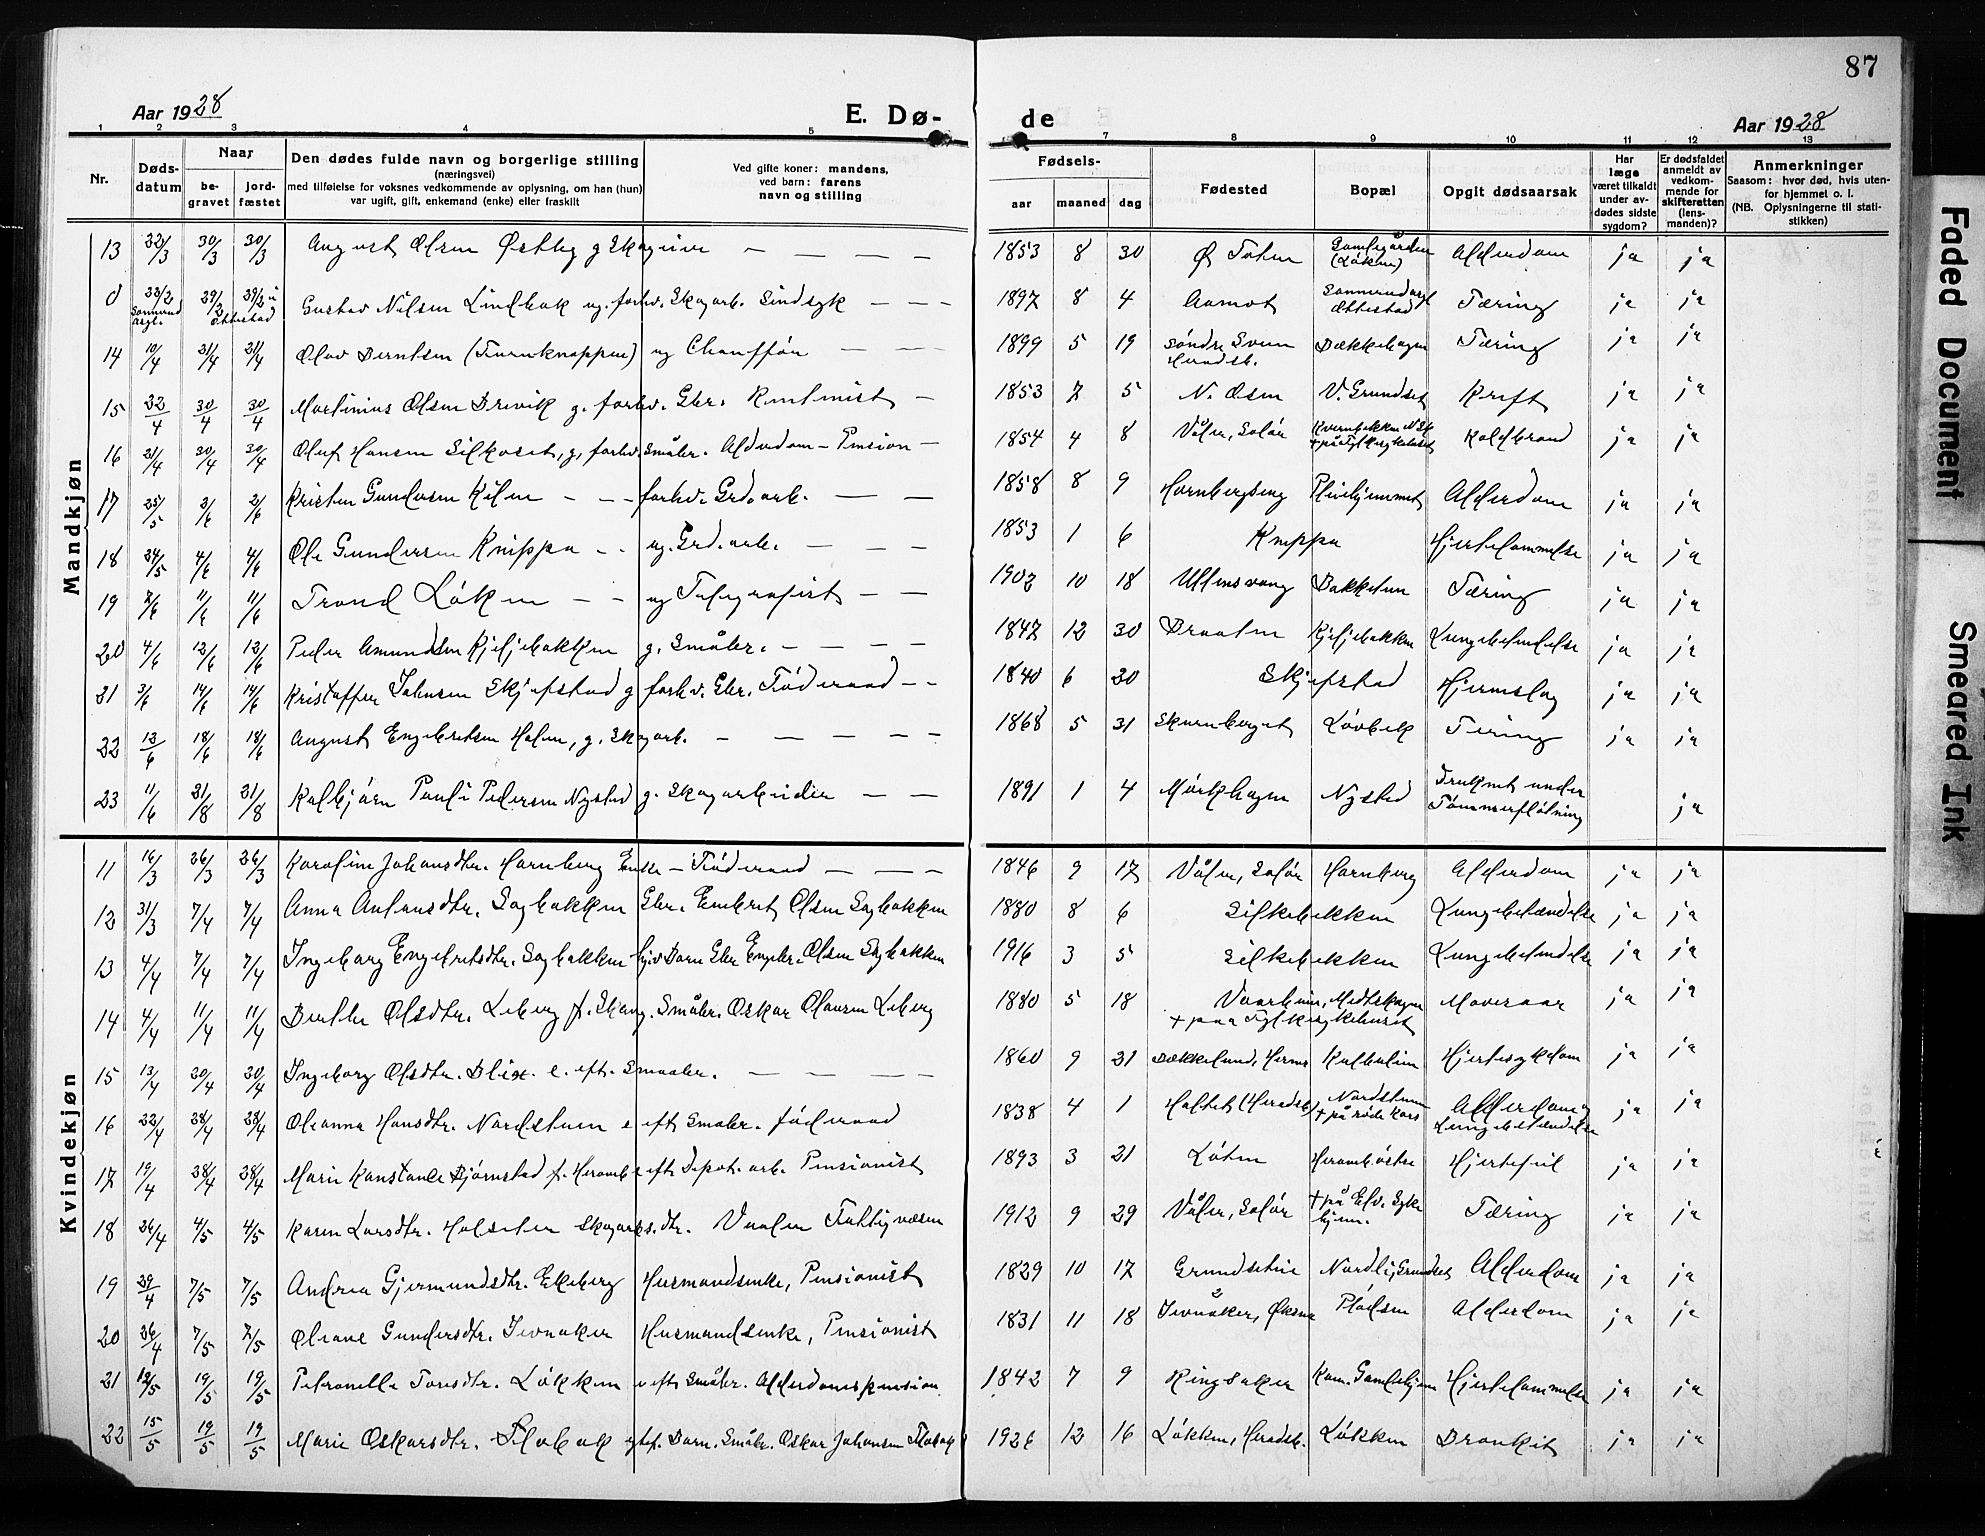 87
Aar 1928
E. Dø-
de
Aar 1928
1 2 3 4 5 7 8 9 10 11 12 13
Nr.
Døds-datum
Naar
be-gravet
jord-fæstet
Den dødes fulde navn og borgerlige stilling
(næringsvei)
med tilføielse for voksnes vedkommende av oplysning, om han (hun)
var ugift, gift, enkemand (enke) eller fraskilt
Ved gifte koner: mandens,
ved barn: farens
navn og stilling
Fødsels-
aar
maaned
dag
Fødested
Bopæl
Opgit dødsaarsak
Har læge været tilkaldt under av-dødes sidste sygdom?
Er dødsfaldet anmeldt av vedkom-mende for skifteretten (lens-manden)?
Anmerkninger
Saasom: hvor død, hvis uten-
for hjemmet o. l.
(NB. Oplysningerne til stati-
stikken)
Mandkjøn
13 22/3 30/3 30/3 August Olsen Østby g 1853 8 30 Ø Toten Alderdom ja ja
Gustav Nilsen Lindbak ug. forhv. Skogarb. Sindsyk 1897 8 4 Aamot Tæring ja ja
14 10/4 21/4 21/4 Olav Berntsen ug Chauffør 1899 5 19 Bækkehagen Tæring ja ja
15 22/4 30/4 30/4 Martinius Olsen Brevik g. forhv. Gbr. 1853 7 5 N. Osen V. Grundset Kreft ja ja
16 21/4 30/4 30/4 Oluf Hansen Silkoset, g, forhv. Småbr. Alderdom-Pension 1854 4 8 Våler, Solør Koldbrand ja ja
17 25/5 2/6 2/6 Kristen Gundersen Kilen forhv. Grd.arb. 1858 8 9 Pleiehjemmet Alderdom ja ja
18 24/5 4/6 4/6 Ole Gundersen Knippa ug. Grd.arb. 1853 1 6 Knippa Hjertelammelse ja ja
19 7/6 11/6 11/6 Trond Løken ug Telegrafist 1902 10 18 Ullensvang Bakketun Tæring ja ja
20 4/6 12/6 12/6 Peder Amundsen Kjeljebakken g. Småbr. 1847 12 30 Braaten Kjeljebakken Lungebetendelse ja ja
21 3/6 14/6 14/6 Kristoffer Johnsen Skjefstad g forhv. Gbr. Føderaad 1840 6 20 Skjefstad Hjerneslag ja ja
22 12/6 18/6 18/6 August Engebretsen Holen, g. Skogarb. 1868 5 31 Skarnberget Løvbek Tering ja ja
23 11/6 21/8 21/8 Kolbjørn Pauli Pedersen Nysted g. Skogarbeider 1891 1 4 Mørkhagen Nysted Druknet under Tømmerfløtning ja
Kvindekjøn
11 16/3 26/3 26/3 Karoline Johansdtr. Hornberg Enke - Føderaad 1846 9 17 Våler, Solør Hornberg Alderdom ja ja
12 31/3 7/4 7/4 Anna Antonsdtr. Sagbakken Gbr. Embret Olsen Sagbakken 1880 8 6 Silkebekken Lungebetændelse ja ja
13 4/4 7/4 7/4 Ingeborg Engebretsdtr. Sagbakken hjv Barn Gbr Engebr. Olsen Sagbakken 1916 3 5 Silkebekken Lungebetendelse ja ja
14 4/4 11/4 11/4 Berthe Olsdtr. Leberg Småbr. Oskar Olausen Leberg 1880 5 18 Mavesaar ja ja
15 13/4 20/4 20/4 Ingeborg Olsdtr. Blix. e. eft. Smaabr. 1860 9 21 Bækkelund, Herns Hjertesykdom ja ja
16 22/4 28/4 28/4 Oleanna Hansdtr. Nordstuen e eft Smabr. føderaad 1838 4 1 Holtet (Heradsb.) Nordstuen + på røde kors Alderdom og Lungebetændelse ja ja
17 19/4 28/4 28/4 Marie Konstanse Bjørnstad eft. Depot. arb. Pensionist 1893 3 21 Løten Hjertefeil ja ja
18 26/4 4/5 4/5 Karen Larsdtr. Holseter Skogarb.s.dtr. Vaaler Fattigvæsen 1912 9 29 Våler, Solør + på Elv. Sykehjem. Tæring ja ja
19 29/4 7/5 7/5 Andrea Gjermundsdtr. Ekeberg Husmandsenke, Pensionist 1829 10 17 Grundsetøie Nordli, Grundset Alderdom ja ja
20 26/4 7/5 7/5 Oleane Gundersdtr. Jevnaker Husmandsenke, Pensionist 1831 11 18 Jevnåker, Øksna Plådsen Alderdom ja ja
21 12/5 19/5 19/5 Petronelle Toresdtr. Løkken e eft Småbr. Alderdomspension 1842 7 9 Ringsaker Kom. Gamlehjem Hjertelammelse ja ja
22 15/5 19/5 19/5 Marie Oskarsdtr. Flobak egtef. Barn. Småbr. Oskar Johansen Flobak 1926 12 16 Løkken, Heradsb. Løkken Bronkit ja ja
Faded Document
Smeared Ink